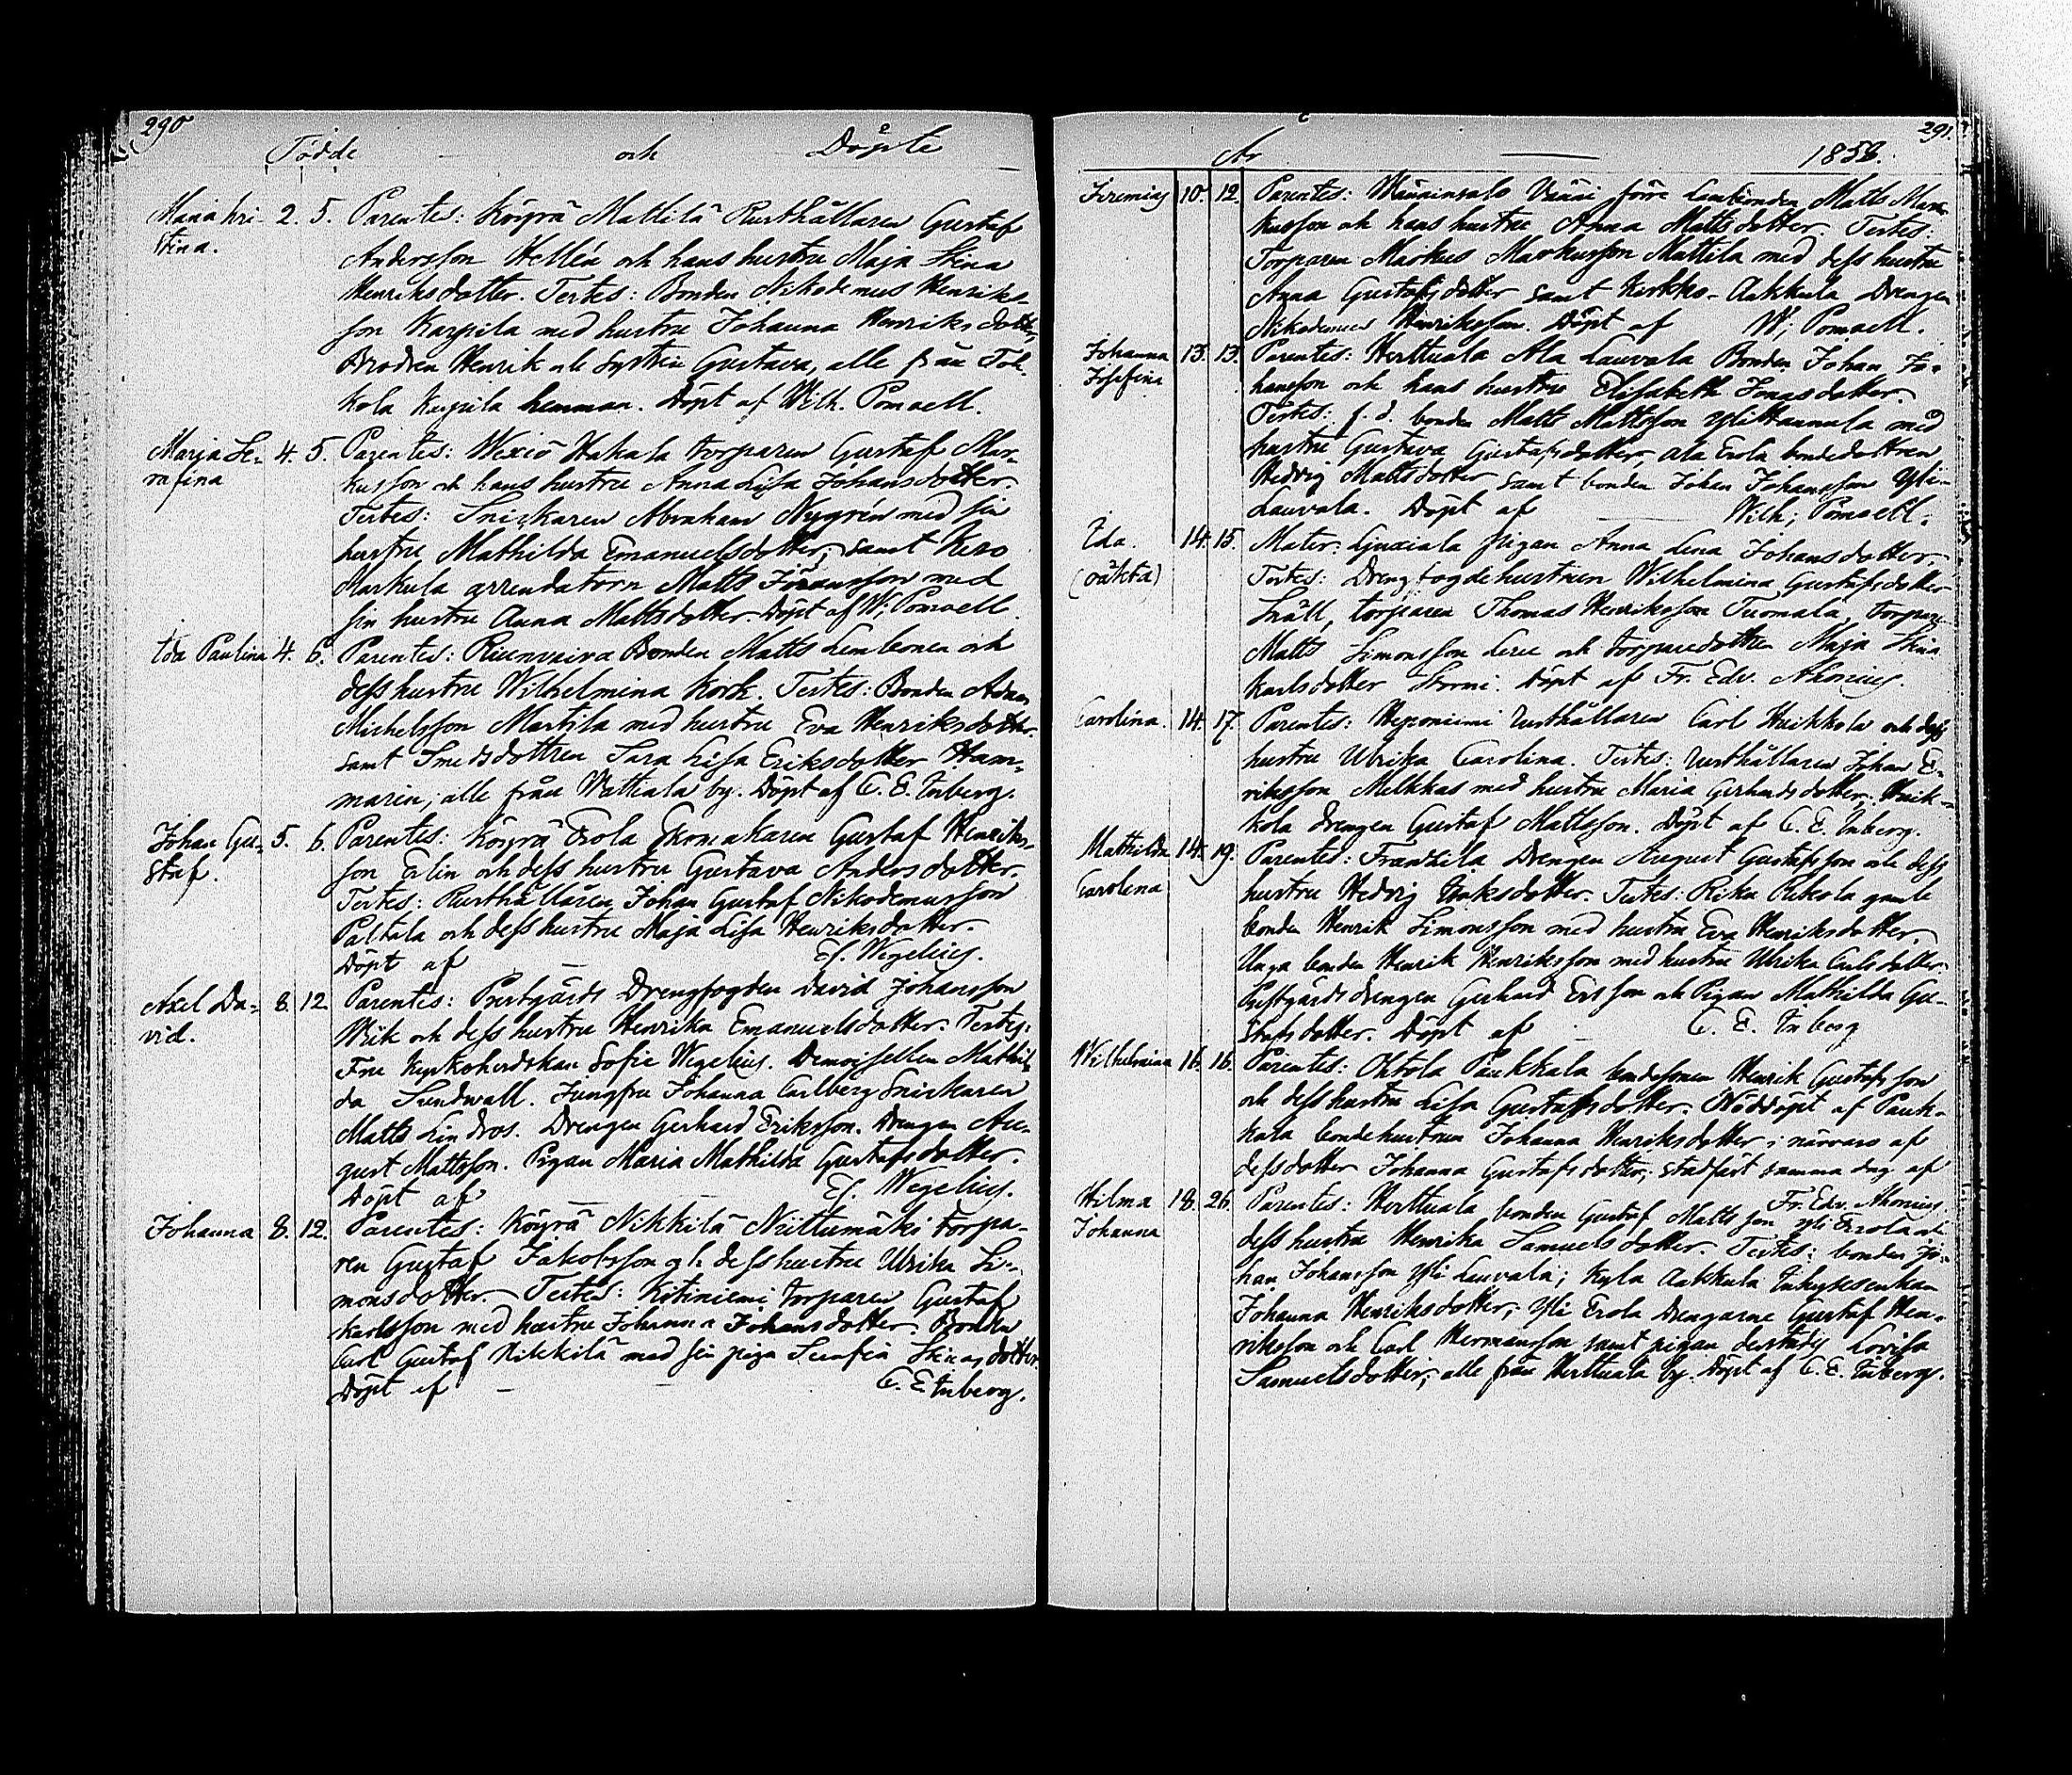 290
Födde och Döpte
Maria Kri- 2. 5. Parentes: Köyrä Mattila Rusthållaren Gustaf
stina. Andersson Hellén och hans hustru Maja Stina
Henriksdotter. Testes: Bonden Nikodemus Henriks-
son Karpila med hustru Johanna Henriksdotter,
Brodren Henrik och Systren Gustava, alle från Toh-
kola Karpila hemman. Döpt af Wilh. Pomoell.
Marja Se- 4. 5. Parentes: Wexiö Hakala torparen Gustaf Mar-
rafina kusson och hans hustru Anna Lisa Johansdotter.
Testes: Snickaren Abraham Nygrén med sin
hustru Mathilda Emanuelsdotter; samt Kero
Markula arrendatorn Matts Göransson med
sin hustru Anna Mattsdotter. Döpt af W; Pomoell.
Ida Paulina 4. 6. Parentes: Riunvaiva Bonden Matts Lembonen och
dess hustru Wilhelmina Kork. Testes: Bonden Adam
Michelsson Martila med hustru Eva Henriksdotter
samt Smedsdottren Sara Lisa Eriksdotter Ham-
marén; alle från Wattiala by. Döpt af C. E. Inberg.
Johan Gu- 5. 6. Parentes: Köyrä Erola Skomakaren Gustaf Henriks-
staf. son Erlin och dess hustru Gustava Andersdotter.
Testes: Rusthållaren Johan Gustaf Nikodemusson
Paltala och dess hustru Maja Lisa Henriksdotter.
Döpt af — Es. Wegelius.
Axel Da- 8. 12 Parentes: Prestgårds Drengfogden David Johansson
vid. Wiik och dess hustru Henrika Emanuelsdotter. Testes:
Fru Kyrkoherdskan Sofie Wegelius. Demoisellen Mathil-
da Sundwall. Jungfru Johanna Carlberg Snickaren
Matts Lindros. Drengen Gerhard Eriksson. Drengen Au-
gust Mattsson. Pigan Maria Mathilda Gustafsdotter.
Döpt af Es. Wegelius.
Johanna 8. 12. Parentes: Köyrä Nikkilä Niittumäki torpa-
ren Gustaf Jakobsson och dess hustru Ulrika Si-
monsdotter. Testes: Kitiniemi torparen Gustaf
Karlsson med hustru Johanna Johansdotter. Bonden
Carl Gustaf Nikkilä med sin piga Serafia dotter.
Döpt af — C. E. Inberg.
291
År — 1858.
Jeremias 10. 12. Parentes: Wäininsalo förre Landbonden Matts Mar-
kusson och hans hustru Anna Mattsdotter. Testes:
Torparen Markus Markusson Mattila med dess hustru
Anna Gustafsdotter samt Kirkko-Aakkula Drengen
Nikodemus Henriksson. Döpt af W; Pomoell.
Johanna 13. 13. Parentes: Herttuala Ala Lauvala Bonden Johan Jo-
Josefina hansson och hans hustru Elisabeth Jonasdotter.
Testes: f. d. bonden Matts Mattsson Yli Haunula med
hustru Gustava Gustafsdotter, ala Erola bondedottren
Hedvig Mattsdotter samt bonden Johan Johansson Yli-
Lauvala. Döpt af — Wilh; Pomoell.
Ida. 14. 15. Mater: Ljuxiala pigan Anna Lena Johansdotter.
(oäkta) Testes: Drengfogdehustrun Wilhelmina Gustafsdotter
Snäll, torparen Thomas Henriksson Tuomala, torparen
Matts Simonsson och torparedottren Maja Stina
Karlsdotter Stormi. Döpt af Fr. Edv. Ahonius.
Carolina. 14. 17. Parentes: Heponiemi rusthållaren Carl Huikkola och dess
hustru Ulrika Carolina. Testes: rusthållaren Johan E-
riksson Melkkas med hustru Maria Gerhardsdotter; Huik-
kola drengen Gustaf Mattsson. Döpt af C. E. Inberg.
Mathilda 14. 19. Parentes: Frantsila Drengen August Gustafsson och dess
Carolina hustru Hedvig Isaksdotter. Testes: Riku Rekola gamle
bonden Henrik Simonsson med hustru Eva Henriksdotter,
Unga bonden Henrik Henriksson med hustru Ulrika Carlsdotter
Prestgårds drengen Gerhard Ersson och Pigan Mathilda Gu-
stafsdotter. Döpt af — C. E. Inberg
Wilhelmina 16. 16. Parentes: Ohtola Paukkala bondesonen Henrik Gustafsson
och dess hustru Lisa Gustafsdotter. Nöddöpt af Pauk-
kala bondehustrun Johanna Henriksdotter i närvaro af
dess dotter Johanna Gustafsdotter; stadfäst samma dag af
Fr. Edv. Ahonius.
Hilma 18. 26. Parentes: Herttuala bonden Gustaf Mattsson Yli Erola och
Johanna dess hustru Henrika Samuelsdotter. Testes: bonden Jo-
han Johansson Yli Lauvala; Kyla Aakkula Inhyseskan
Johanna Henriksdotter; Yli Erola Drengarne Gustaf Hen-
riksson och Carl Hermansson samt pigan derstädes Lovisa
Samuelsdotter; alle från Herttuala by. Döpt af C. E. Inberg.